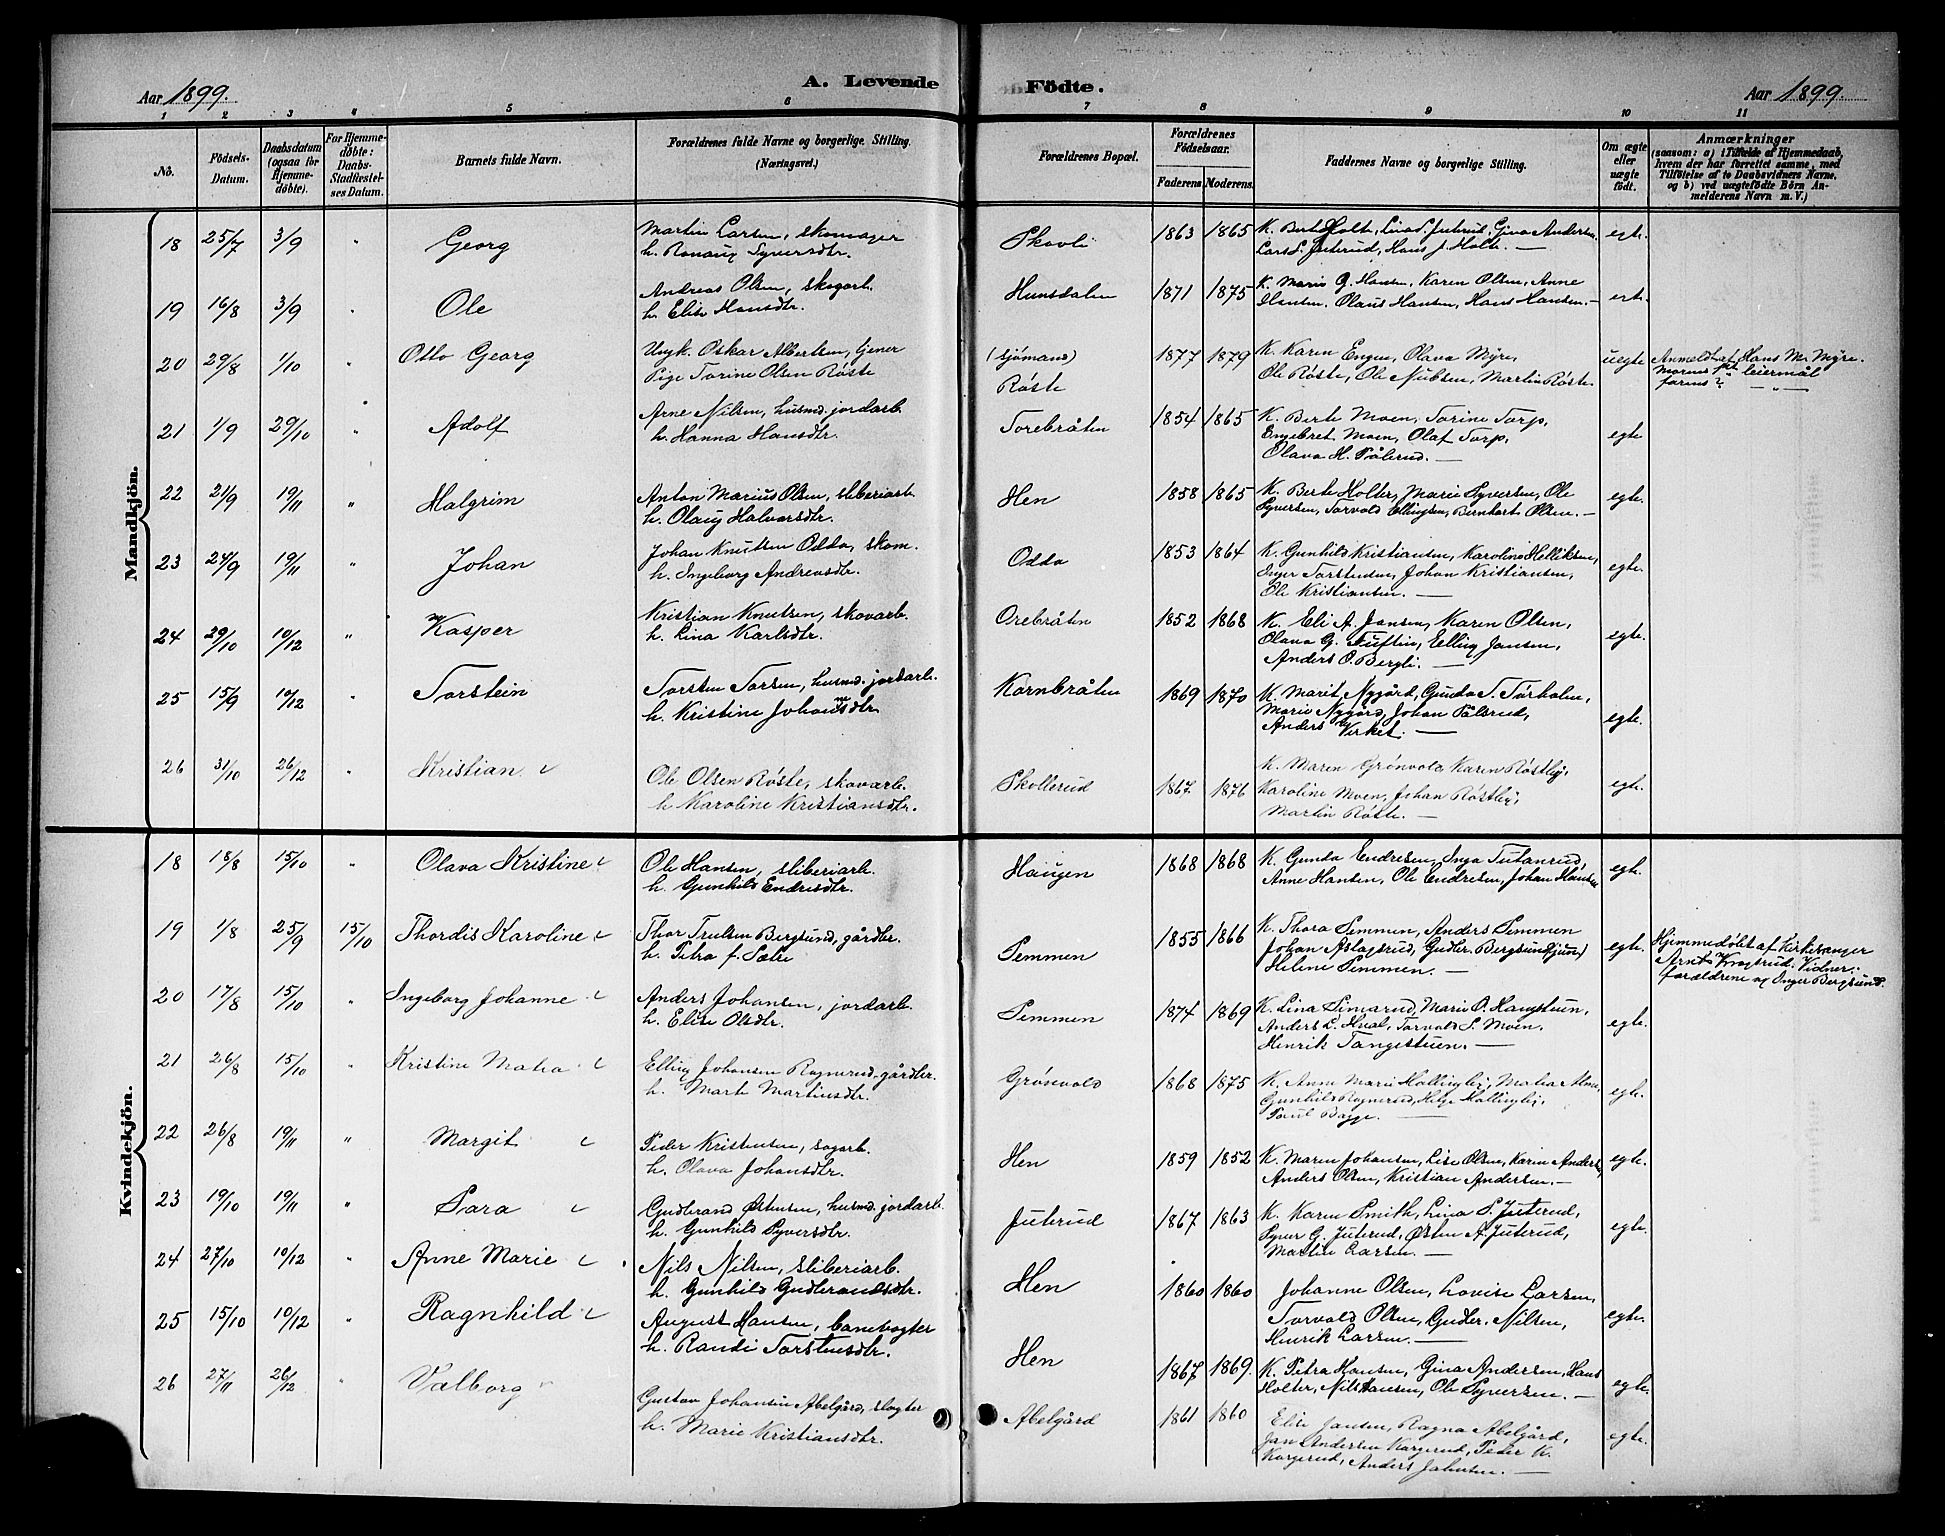 Aar 1899.
A. Levende
Födte.
Aar 1899.
1 2 3 4 5 6 7 8 9 10 11
No.
Födsels-Datum.
Daabsdatum (ogsaa for Hjemme-døbte).
For Hjemme-døbte: Daabs-Stadfæstel-ses Datum.
Barnets fulde Navn.
Forældrenes fulde Navne og borgerlige Stilling.
(Næringsvei.)
Forældrenes Bopæl.
Forældrenes Födselsaar.
Faderens. Moderens.
Faddernes Navne og borgerlige Stilling.
Om ægte eller uægte født.
Anmærkninger
(saasom: a) i Tilfælde af Hjemmedaab, hvem der har forrettet samme, med Tilföielse af to Daabsvidners Navne, og b) ved uægtefödte Börn An-melderens Navn m. V.)
Mandkjön.
18 25/7 3/9 " Georg
Martin Larsen, skomager
h. Ronaug Syversdtr.
Skovli 1863 1865
K. Berte Holte, Lina S. Juterud, Gina Andersen,
Lars S. Juterud, Hans J. Holte. —
egte.
19 16/8 3/9 " Ole
Andreas Olsen, skogarb.
h. Elise Hansdtr.
Hunsdalen 1871 1875
K. Marie G. Hansen, Karen Olsen, Anne
Hansen, Olaus Hansen, Hans Hansen. —
egte.
20 29/8 1/10 " Otto Georg
Ungk. Oskar Albertsen, tjener
Pige Torine Olsen Røste
(sjømand)
Røste 1877 1879
K. Karen Engen, Olava Myre,
Ole Røste, Ole Nubsen, Martin Røste
uegte
Anmeldt af Hans M. Myre.
Morens 1ste leiermål
farens ? — " —
21 1/9 29/10 " Adolf
Arne Nilsen, husmd. jordarb.
h. Hanna Hansdtr.
Torebråten 1854 1865
K. Berte Moen, Torine Torp,
Engebret Moen, Olaf Torp,
Olava H. Pålerud. —
egte
22 21/9 19/11 " Halgrim
Anton Marius Olsen, sliberiarb.
h. Olaug Halvorsdtr.
Hen 1858 1865
K. Berte Holter, Marie Syversen, Ole
Syversen, Torvald Ellingsen, Bernhart Olsen. —
egte.
23 24/9 19/11 " Johan
Johan Knutsen Odda, skom.
h. Ingeborg Andreasdtr.
Odda 1853 1864
K. Gunhild Kristiansen, Karoline Helliksen,
Inger Torstensen, Johan Kristiansen,
Ole Kristiansen. —
egte.
24 29/10 10/12 " Kasper
Kristian Knutsen, skovarb.
h. Lina Karlsdtr.
Orebråten 1852 1868
K. Eli A. Jansen, Karen Olsen,
Olava G. Tuftin, Elling Jansen,
Anders O. Bergli. —
egte.
25 15/9 10/12 " Torstein
Torsten Torsen, husmd. jordarb.
h. Kristine Johannsdtr.
Kornbråten 1869 1870
K. Marit Nygård, Gunda T. Torholm,
Marie Nygård, Johan Pålsrud,
Anders Virket. —
egte.
26 31/10 26/12 " Kristian
Ole Olsen Røste, skovarb.
h. Karoline Kristiansdtr.
Skollerud 1867 1876
K. Maren Grønvold, Karen Røstby,
Karoline Moen, Johan Røstby,
Martin Røste. —
egte.
Kvindekjön.
18 18/8 15/10 " Olava Kristine
Ole Hansen, sliberiarb.
h. Gunhild Endresdtr.
Haugen 1868 1868
K. Gunda Endresen, Inga Tutanrud,
Anne Hansen, Ole Endresen, Johan Hansen
egte.
19 1/8 25/9 15/10 Thordis Karoline
Thor Trulsen Bergsund, gårdbr.
h. Petra f. Sætre
Semmen 1855 1866
K. Thora Semmen, Anders Semmen
Johan Aslagsrud, Gudbr. Bergsund (jun.)
Helene Semmen. —
egte.
Hjemmedøbt af Kirkesanger
Arnt Knestrud. Vidner:
forældrene og Inger Bergsund.
20 17/8 15/10 " Ingeborg Johanne
Anders Johansen, jordarb.
h. Elise Olsdtr.
Semmen 1874 1869
K. Lina Simarud, Marie O. Haugstuen,
Anders L. Hval, Torvald S. Moen,
Henrik Tangestuen. —
egte.
21 26/8 15/10 " Kristine Matea
Elling Johansen Ragnerud, gårdbr.
h. Marte Martinsdtr.
Grønvold 1868 1875
K. Anne Marie Hallingby, Matea Alme,
Gunhild Ragnerud, Helge Hallingby,
Paul Bagge. —
egte.
22 26/8 19/11 " Margit
Peder Kristensen, sagarb.
h. Olava Johansdtr.
Hen 1859 1852
K. Maren Johansen, Lise Olsen, Karen Andersen,
Anders Olsen, Kristian Andersen. —
egte.
23 19/10 19/11 " Sara
Gudbrand Østensen, husmd. jordarb.
h. Gunhild Syversdtr.
Juterud 1867 1863
K. Karen Smith, Lina S. Juterud,
Syver G. Juterud, Østen A. Juterud,
Martin Larsen. —
egte.
24 27/10 10/12 " Anne Marie
Nils Nilsen, sliberiarb.
h. Gunhild Gudbrandsdtr.
Hen 1860 1860
Johanne Olsen, Lovise Larsen,
Torvald Olsen, Gudbr. Nilsen,
Henrik Larsen. —
egte.
25 15/10 10/12 " Ragnhild
August Hansen, banevogter
h. Randi Torstensdtr.
Hen 1867 1869.
K. Petra Hansen, Gina Andersen, Hans
Holter, Nils Hansen, Ole Syversen. —
egte.
26 27/11 26/12 " Valborg
Gustav Johansen Abelgård, slagter
h. Marie Kristiansdtr.
Abelgård 1861 1860
Elise Jansen, Ragna Abelgård,
Jan Andersen Kargerud, Peder K.
Korgerud, Anders Jahnsen. —
egte.